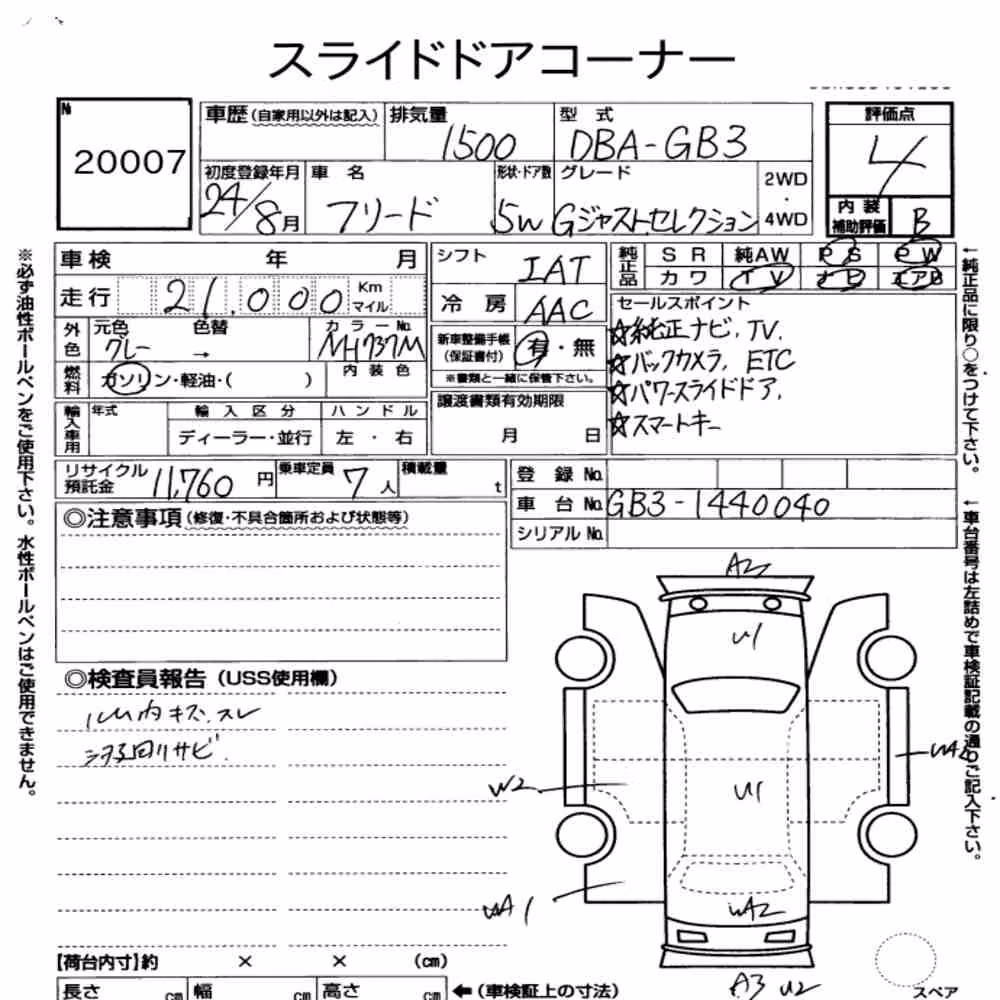 スライドドアコーナー
№ 20007
車歴 (自家用以外は記入) 排気量 1500 型式 DBA-GB3
評価点 4
初度登録年月 24/8月 車名 フリード 形状・ドア数 5W グレード Gジャストセレクション 2WD・4WD
内装補助評価 B
車検 年 月
シフト IAT
純正品 SR 純AW PS PW
カワ TV ナビ エアB
走行 21,000 Km マイル
冷房 AAC
セールスポイント
外色 元色 グレー 色替 → カラーNo. NH737M
新車整備手帳 (保証書付) 有・無
※書類と一緒に保管下さい。
☆純正ナビ, TV.
☆バックカメラ, ETC
☆パワースライドドア.
☆スマートキー
燃料 ガソリン・軽油・( ) 内装色
譲渡書類有効期限
月 日
輸入車用 年式 輸入区分 ハンドル
ディーラー・並行 左・右
リサイクル預託金 11,760円 乗車定員 7人 積載量 t
登録No.
車台No. GB3-1440040
シリアルNo.
◎注意事項 (修復・不具合箇所および状態等)
◎検査員報告 (USS使用欄)
A2
U1
W2
U1
UA1
UA2
A3 U2
【荷台内寸】約 × × (cm)
長さ cm 幅 cm 高さ cm ←(車検証上の寸法)
スペア
※必ず油性ボールペンをご使用下さい。水性ボールペンはご使用できません。
←純正品に限り○をつけて下さい。
←車台番号は左詰めで車検証記載の通りご記入下さい。